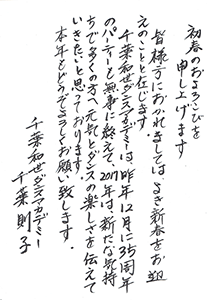 初春のおよろこびを
申し上げます
皆様方におかれましては、よき新春をお迎
えのことと存じます。
千葉和世ダンスアカデミーは、昨年12月に35周年
のパーティーを無事に終えて、2017年は、新たな気持
ちで多くの方へ元気とダンスの楽しさを伝えて
いきたいと思っております。
本年もどうぞよろしくお願い致します。
千葉和世ダンスアカデミー
千葉則子